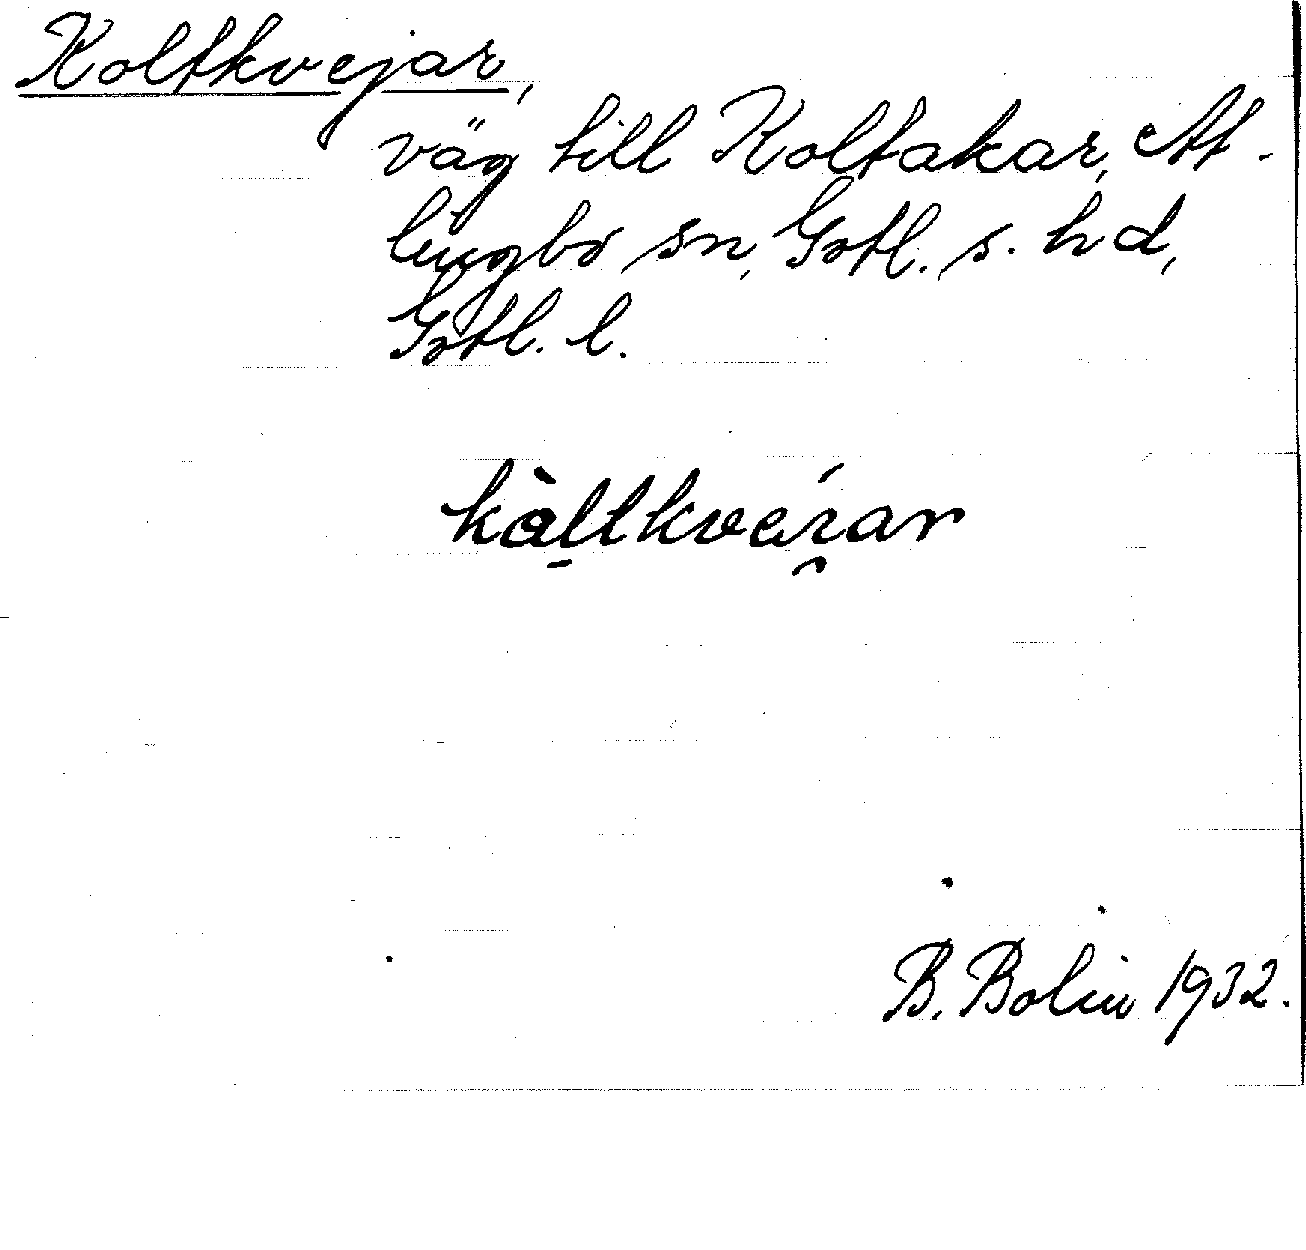 Koltkvejar,
väg till Koltakar, At-
lingbo sn, Gotl. s. hd,
Gotl. l.
B. Bolin 1932.